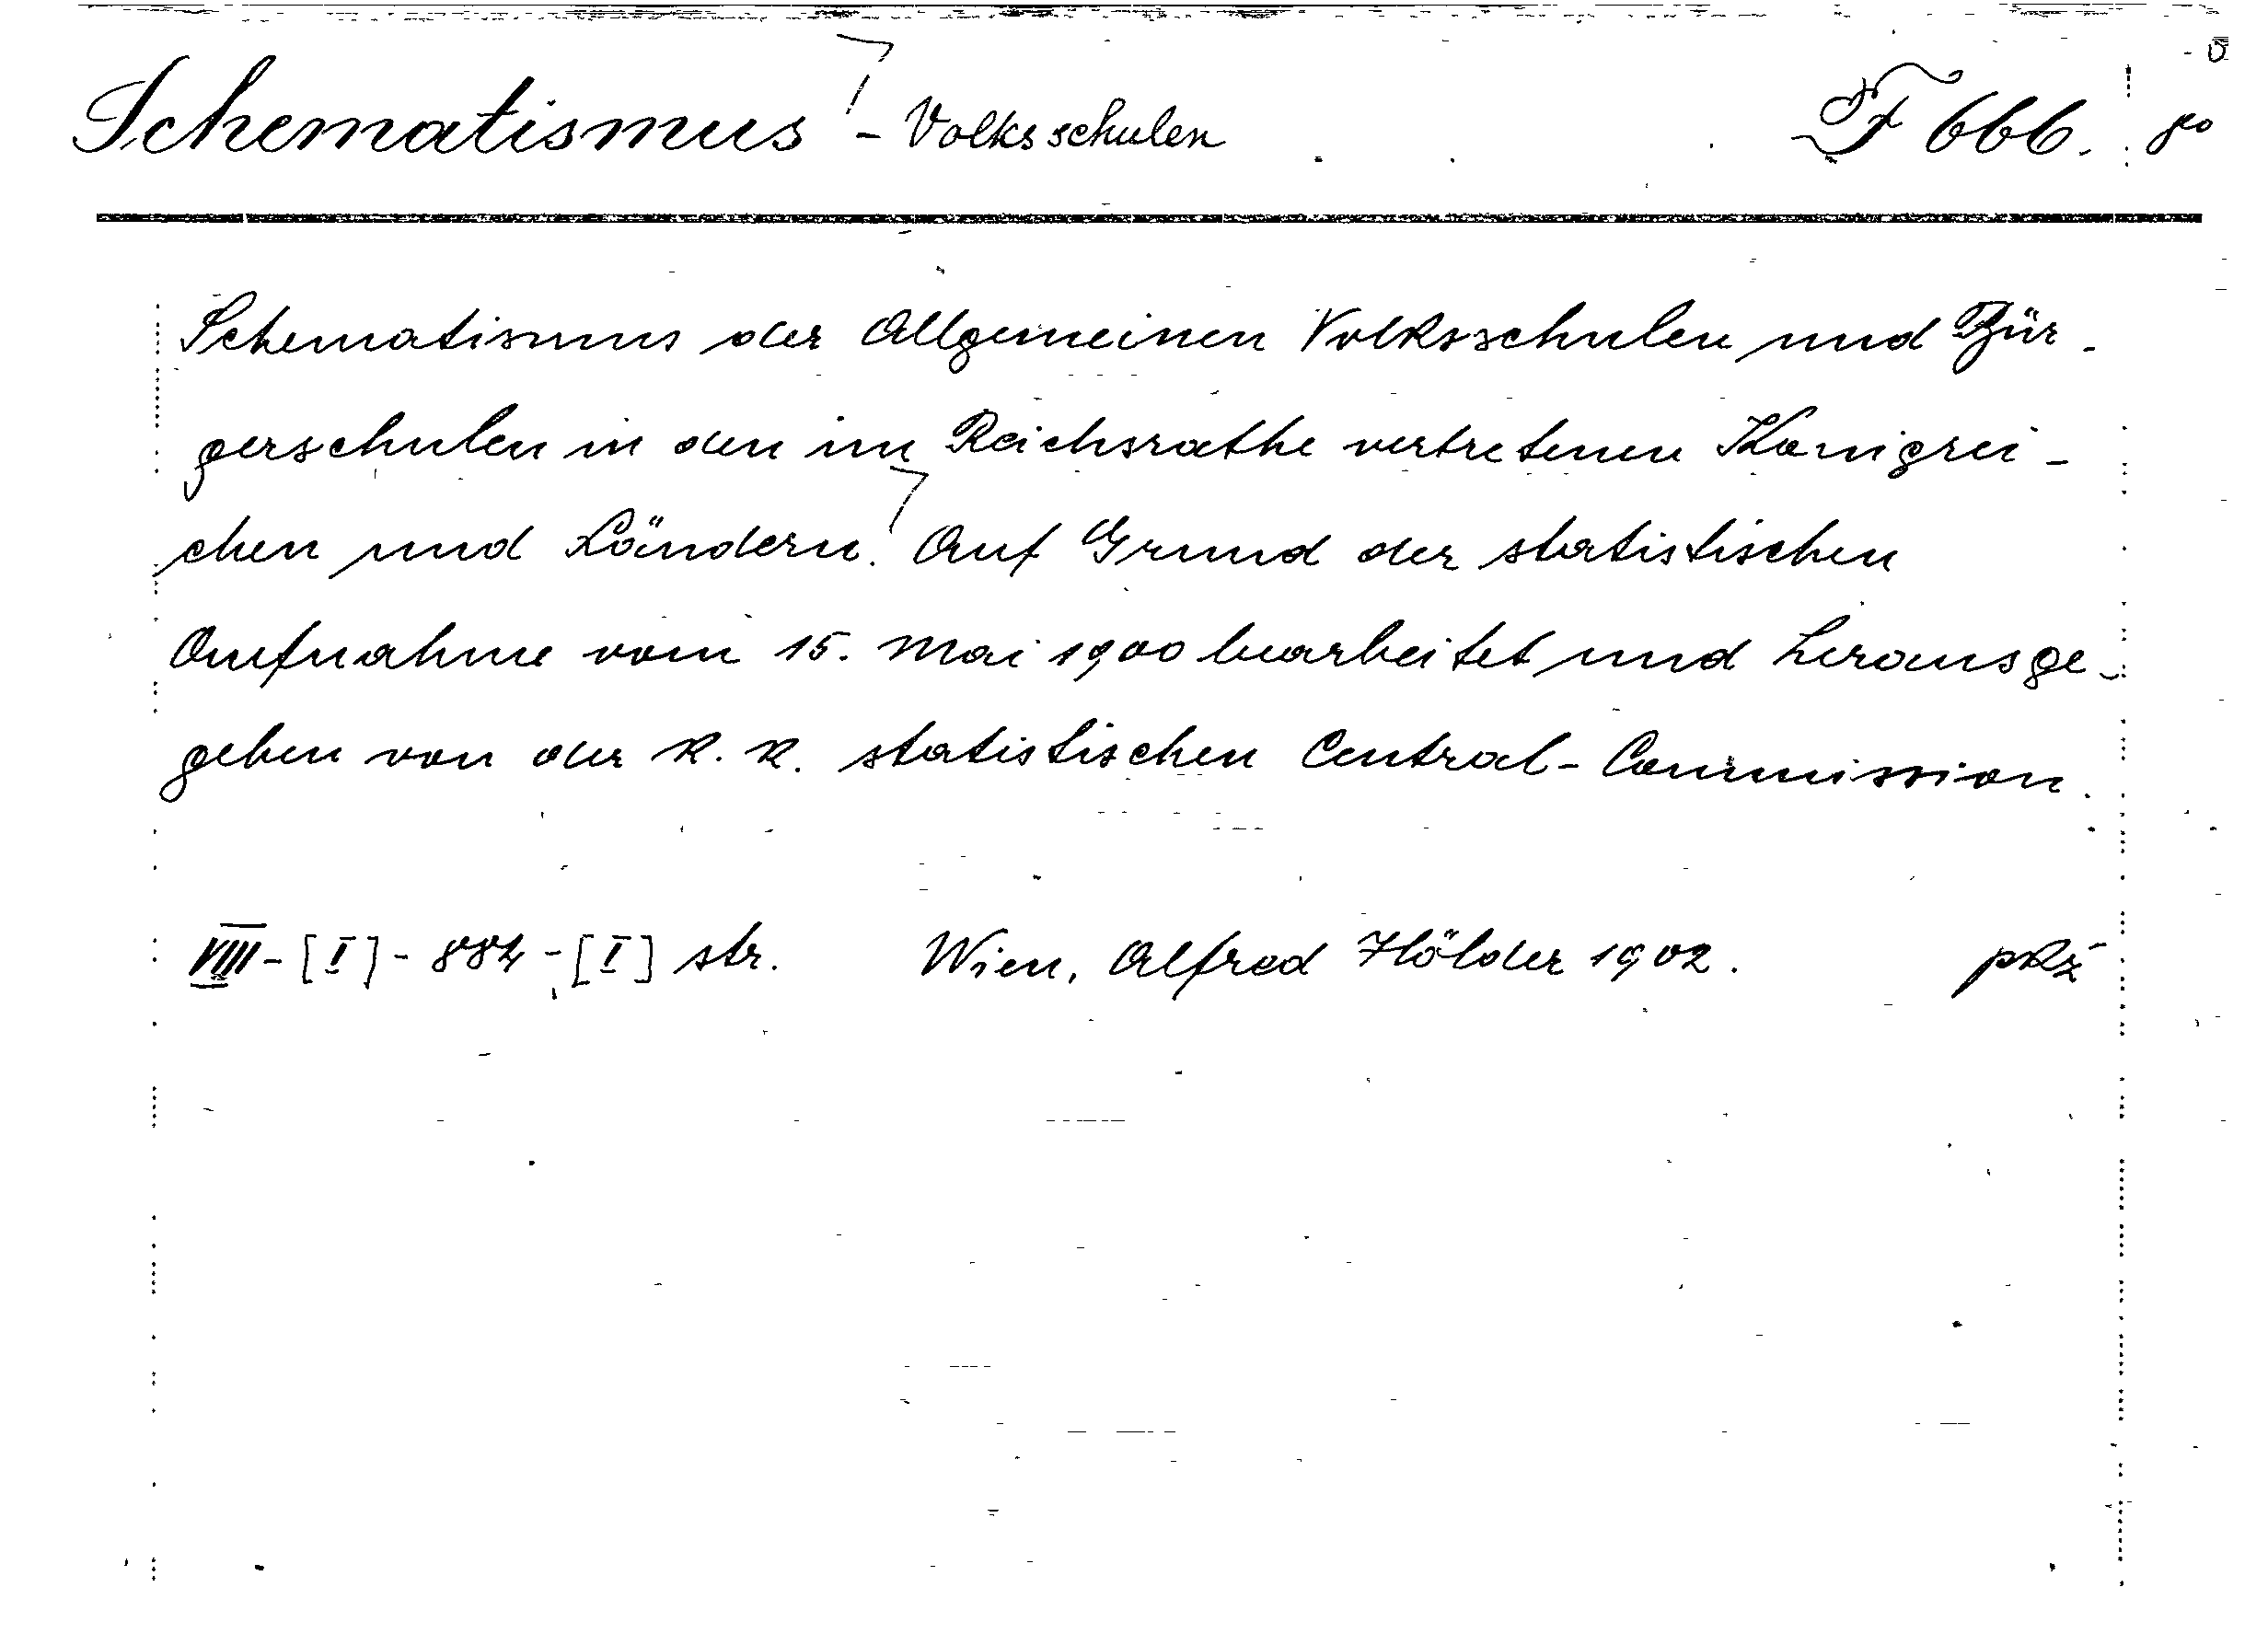 Schematismus - Volksschulen F 666. 8°
Schematismus der Allgemeinen Volksschulen und Bür-
gerschulen in den im Reichsrathe vertretenen Königrei-
chen und Ländern. Auf Grund der statistischen
Aufnahme vom 15. Mai 1900 bearbeitet und herausge-
geben von der k. k. statistischen Central-Commission.
VIII - [I] - 884 - [I] str. Wien, Alfred Hölder 1902.